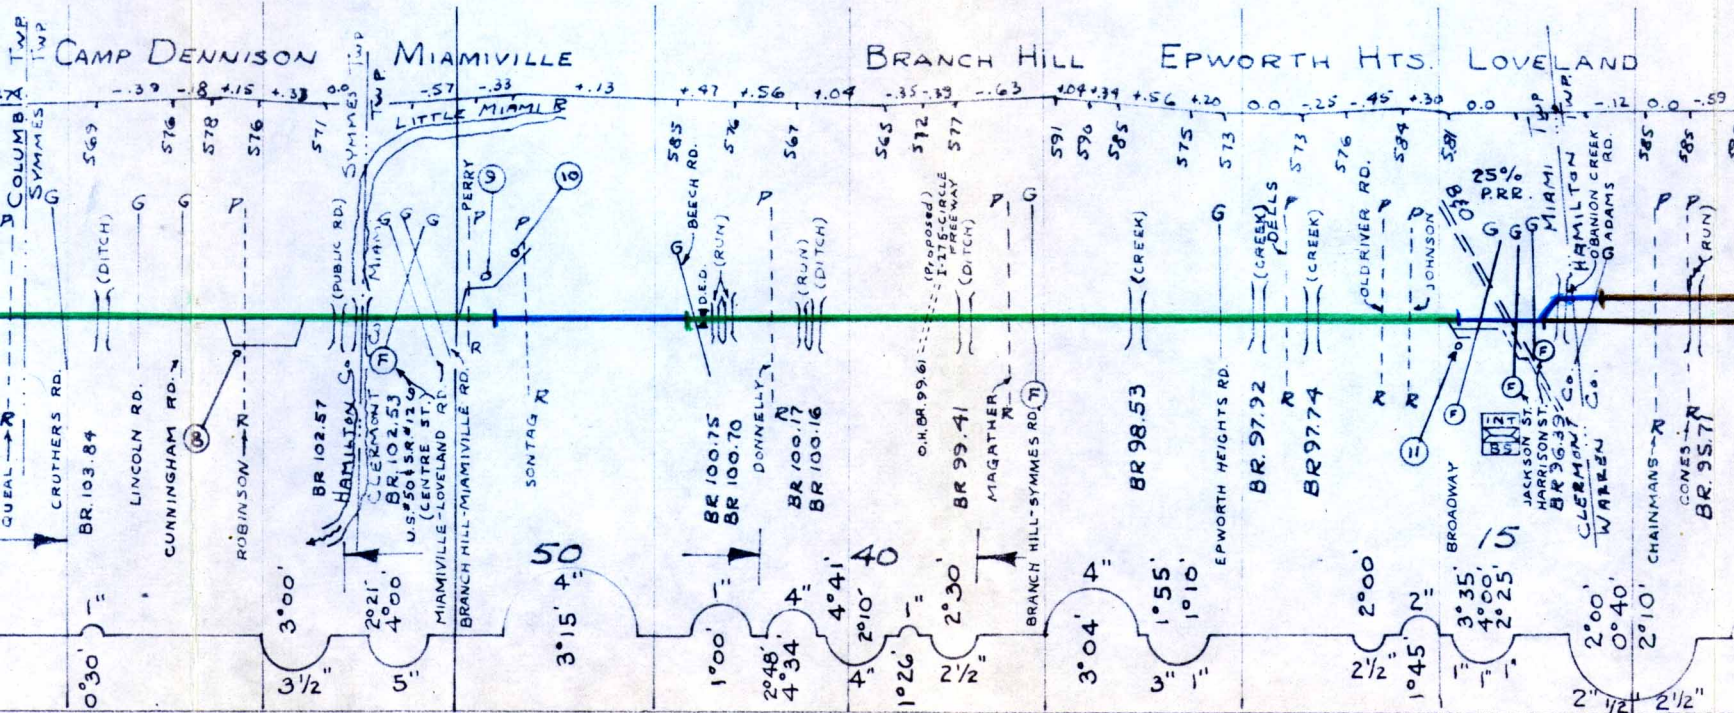 CAMP DENNISON
MIAMIVILLE
BRANCH HILL
EPWORTH HTS.
LOVELAND
-.39
-.18
+.15
+.33
0.0
-.57
-.33
+.13
+.47
+.56
+.04
-.35
-.39
-.63
+.04
+.34
+.56
+.20
0.0
-.25
-.45
+.30
0.0
-.12
0.0
-.59
COLUMBIA TWP
SYMMES TWP
SYMMES TWP
MIAMI TWP
LITTLE MIAMI R
MIAMI TWP
HAMILTON TWP.
569
576
578
576
571
585
576
567
565
572
577
591
590
585
575
573
573
576
584
581
585
585
P
G
G
G
P
G
G
G
P
P
G
P
P
G
G
P
P
P
G
G
G
G
P
P
(DITCH)
(PUBLIC RD.)
PERRY
9
10
BEECH RD.
D.E.D.
(RUN)
(RUN)
(DITCH)
(Proposed)
I-275-CIRCLE
FREEWAY
(DITCH)
(CREEK)
(CREEK)
DELLS
(CREEK)
OLDRIVER RD.
JOHNSON
25%
PRR
OBANION CREEK
ADAMS RD.
(RUN)
QUEAL R
CRUTHERS RD.
BR. 103.84
LINCOLN RD.
CUNNINGHAM RD.
8
ROBINSON R
BR 102.57
HAMILTON Co.
CLERMONT Co.
BR. 102.53
U.S. #50 & S.R. #126
(CENTRE ST.)
F
MIAMIVILLE-LOVELAND RD.
BRANCH HILL-MIAMIVILLE RD.
R
SONTAG R
BR 100.75
BR 100.70
DONNELLY R
BR 100.17
BR 100.16
O.H.BR. 99.61
BR 99.41
MAGATHER R
BRANCH HILL-SYMMES RD.
BR 98.53
EPWORTH HEIGHTS RD.
BR. 97.92
R
BR 97.74
R
R
11
BROADWAY
F
F
JACKSON ST.
HARRISON ST.
BR 96.39
CLERMONT Co.
WARREN Co.
CHAINMANS R
CONES R
BR. 95.77
50
40
15
0°30'
1"
3°00'
3 1/2"
2°21'
4°00'
5"
3°15'
4"
1°00'
1"
2°48'
4°34'
4"
4°41'
2°10'
4"
1°26'
1"
2°30'
2 1/2"
3°04'
4"
1°55'
1°10'
3"
1"
2°00'
2 1/2"
1°45'
2"
3°35'
4°00'
2°25'
1"
1"
1"
2°00'
0°40'
2°10'
2"
1/2"
2 1/2"